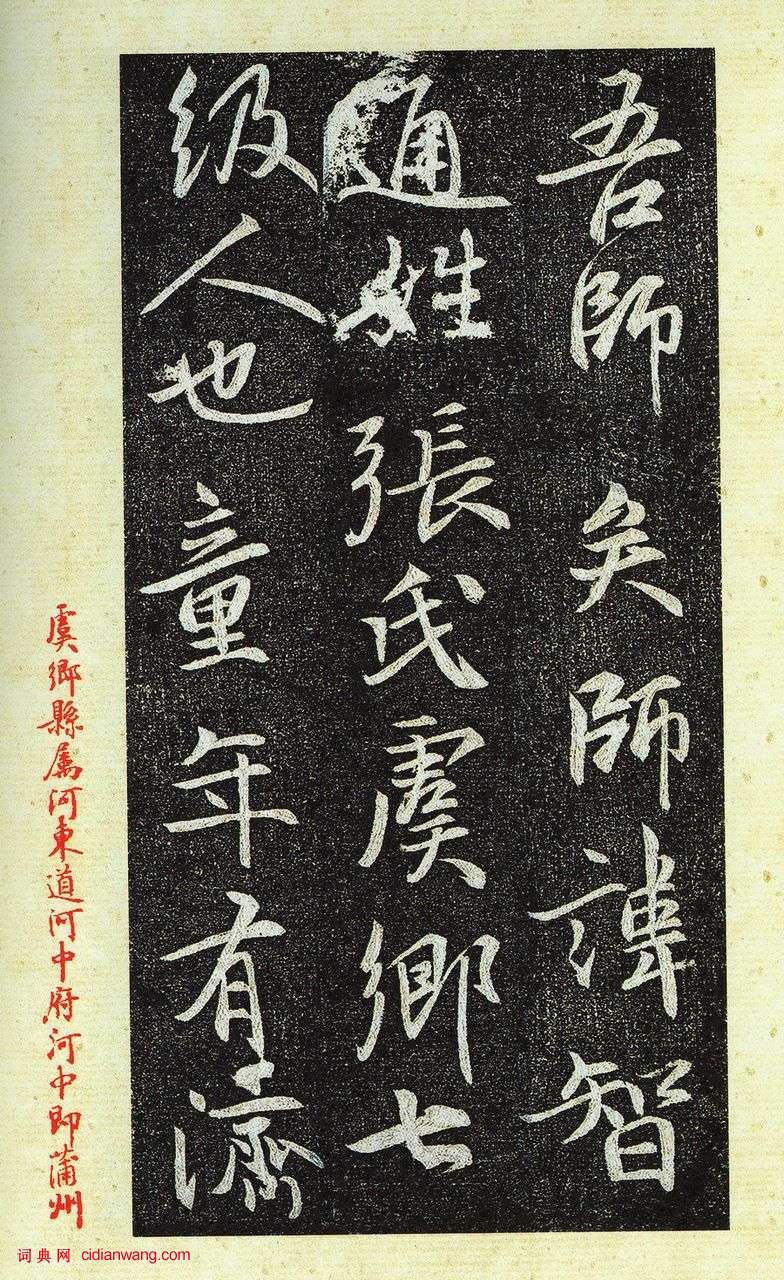 吾師矣師諱智
通姓張氏虞鄉七
級人也童年有濟
虞鄉縣屬河東道河中府河中即蒲州
词典网 cidianwang.com